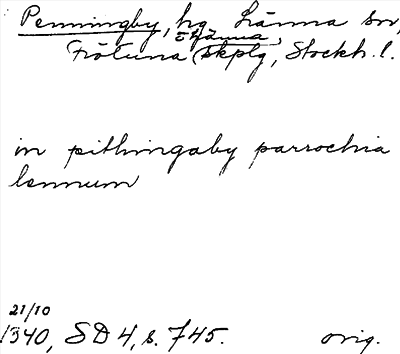 Penningby, hg Länna sn,
Frötuna (o Länna) skplg, Stockh. l.
in pithingaby parrochia
lennum
21/10
1340, SD 4, s. 745. orig.